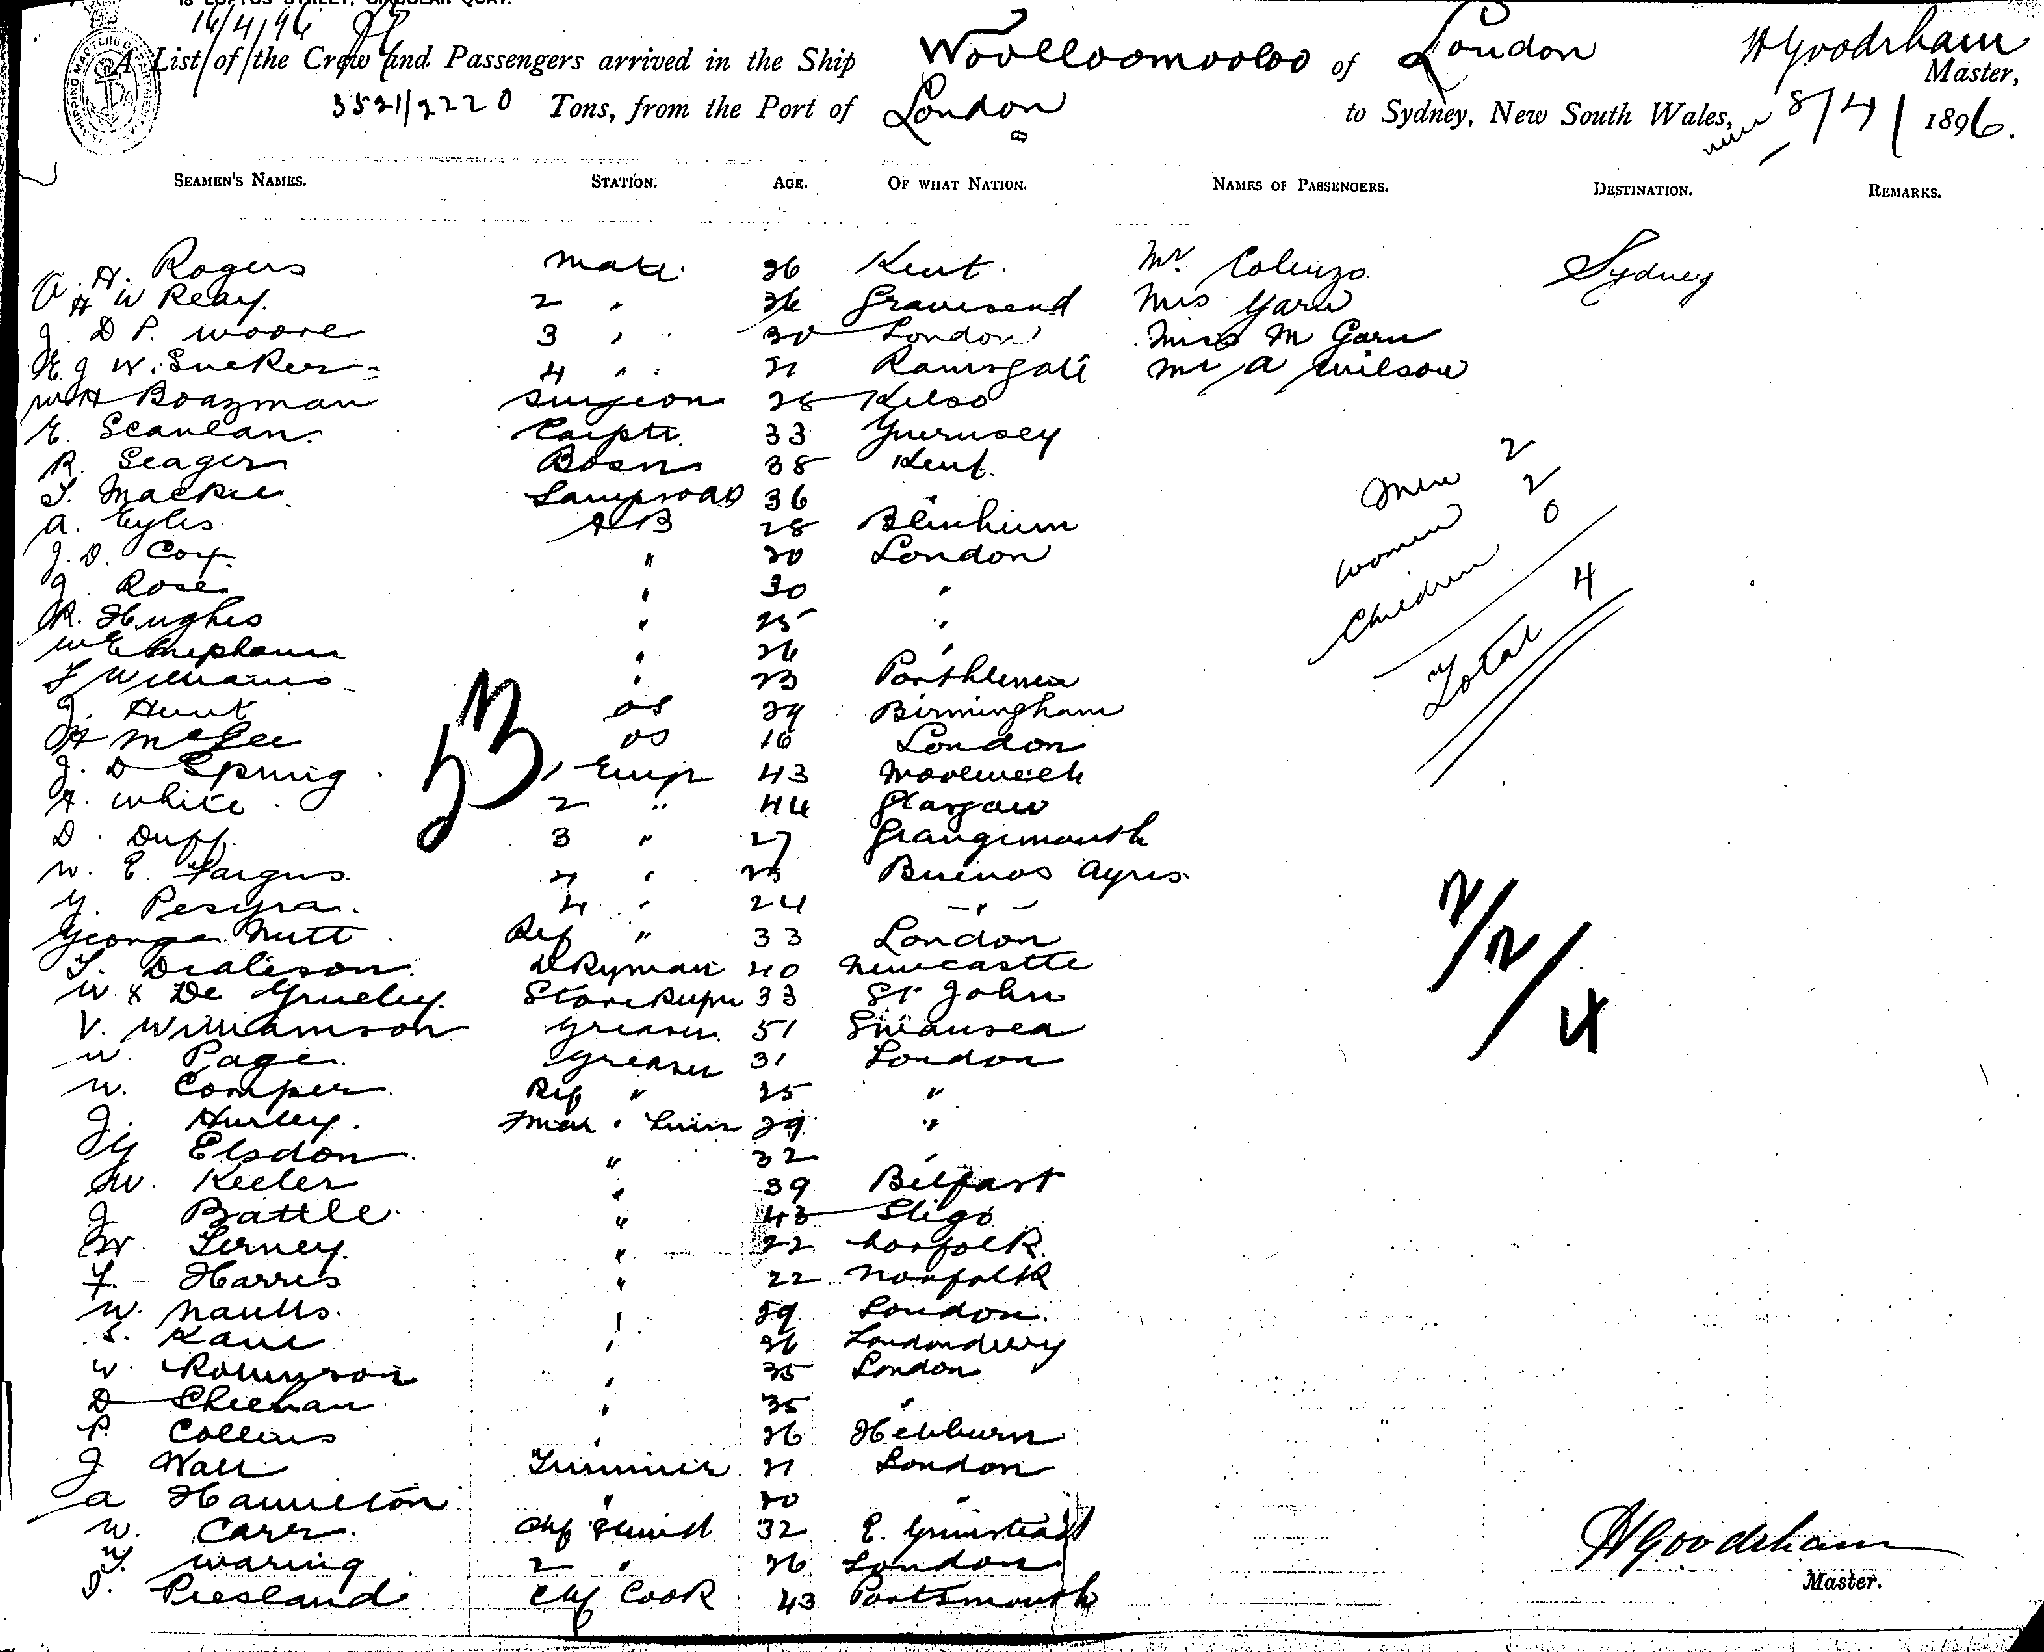 18 LOFTUS STREET, CIRCULAR QUAY.
16/4/96
A List of the Crew and Passengers arrived in the Ship Woolloomooloo of London H Goodrham Master,
3521/2220 Tons, from the Port of London to Sydney, New South Wales, 8/4/1896.
SEAMEN'S NAMES. STATION. AGE. OF WHAT NATION. NAMES OF PASSENGERS. DESTINATION. REMARKS.
A. H. Rogers Mate 36 Kent. Mr. Colenzo Sydney
H W Reay. 2 " Gravesend Mrs Garn
J. D P. Moore 3 " 30 London Miss M Garn
E. J W. Sucker 4 " 21 Ramsgate Mr A Wilson
W H Boazman Surgeon 28 Kelso
E. Scanlan. Carptr. 33 Guernsey
R. Seager Bosn 38 Kent.
T. Mackie Lamps 36 "
A. Eyles AB 28 Blenheim
J. D. Cox. " 30 London
J. Rose " 30 "
R. Hughes " 25 "
W E " 26 "
F Williams " 23 Porthleven
J. Hunt OS 29 Birmingham
H McGee OS 16 London
J. D Spring 1 Engr 43
A. White 2 " 44 Glasgow
D. Duff. 3 " 27 Grangemouth
W. E. Fargus " Buenos Ayres
Y. 4 " 24 "
George Nutt Ref " 33 London
T. DKyman 40 Newcastle
W De Storekeepr 33 St John
V. Williamson Greaser 51 Swansea
W. Page Greaser 31 London
W. Comper Ref " 25 "
J. Hurley. 29 "
G Elsdon " 32 "
W. Keeler " 39 Belfast
J Battle " 43 Sligo
W. Terney. " 22 Norfolk
F. Harris " 22 Norfolk
W. Naulls. " 29 London.
S. Kane " 36 Londonderry
W. Robinson " 35 London
D Sheehan " 35 "
P. Collins " 36 Hebburn
J Wall Trimmer 21 London
A Hamilton " 20 "
W. Carr. Chf Stewd 32 E. Grinstead
T. Waring 2 " 26 London
Presland Chf Cook 43 Portsmouth
53
Men 2
Women 2
Children 0
Total 4
2/2/4
H Goodrham
Master.